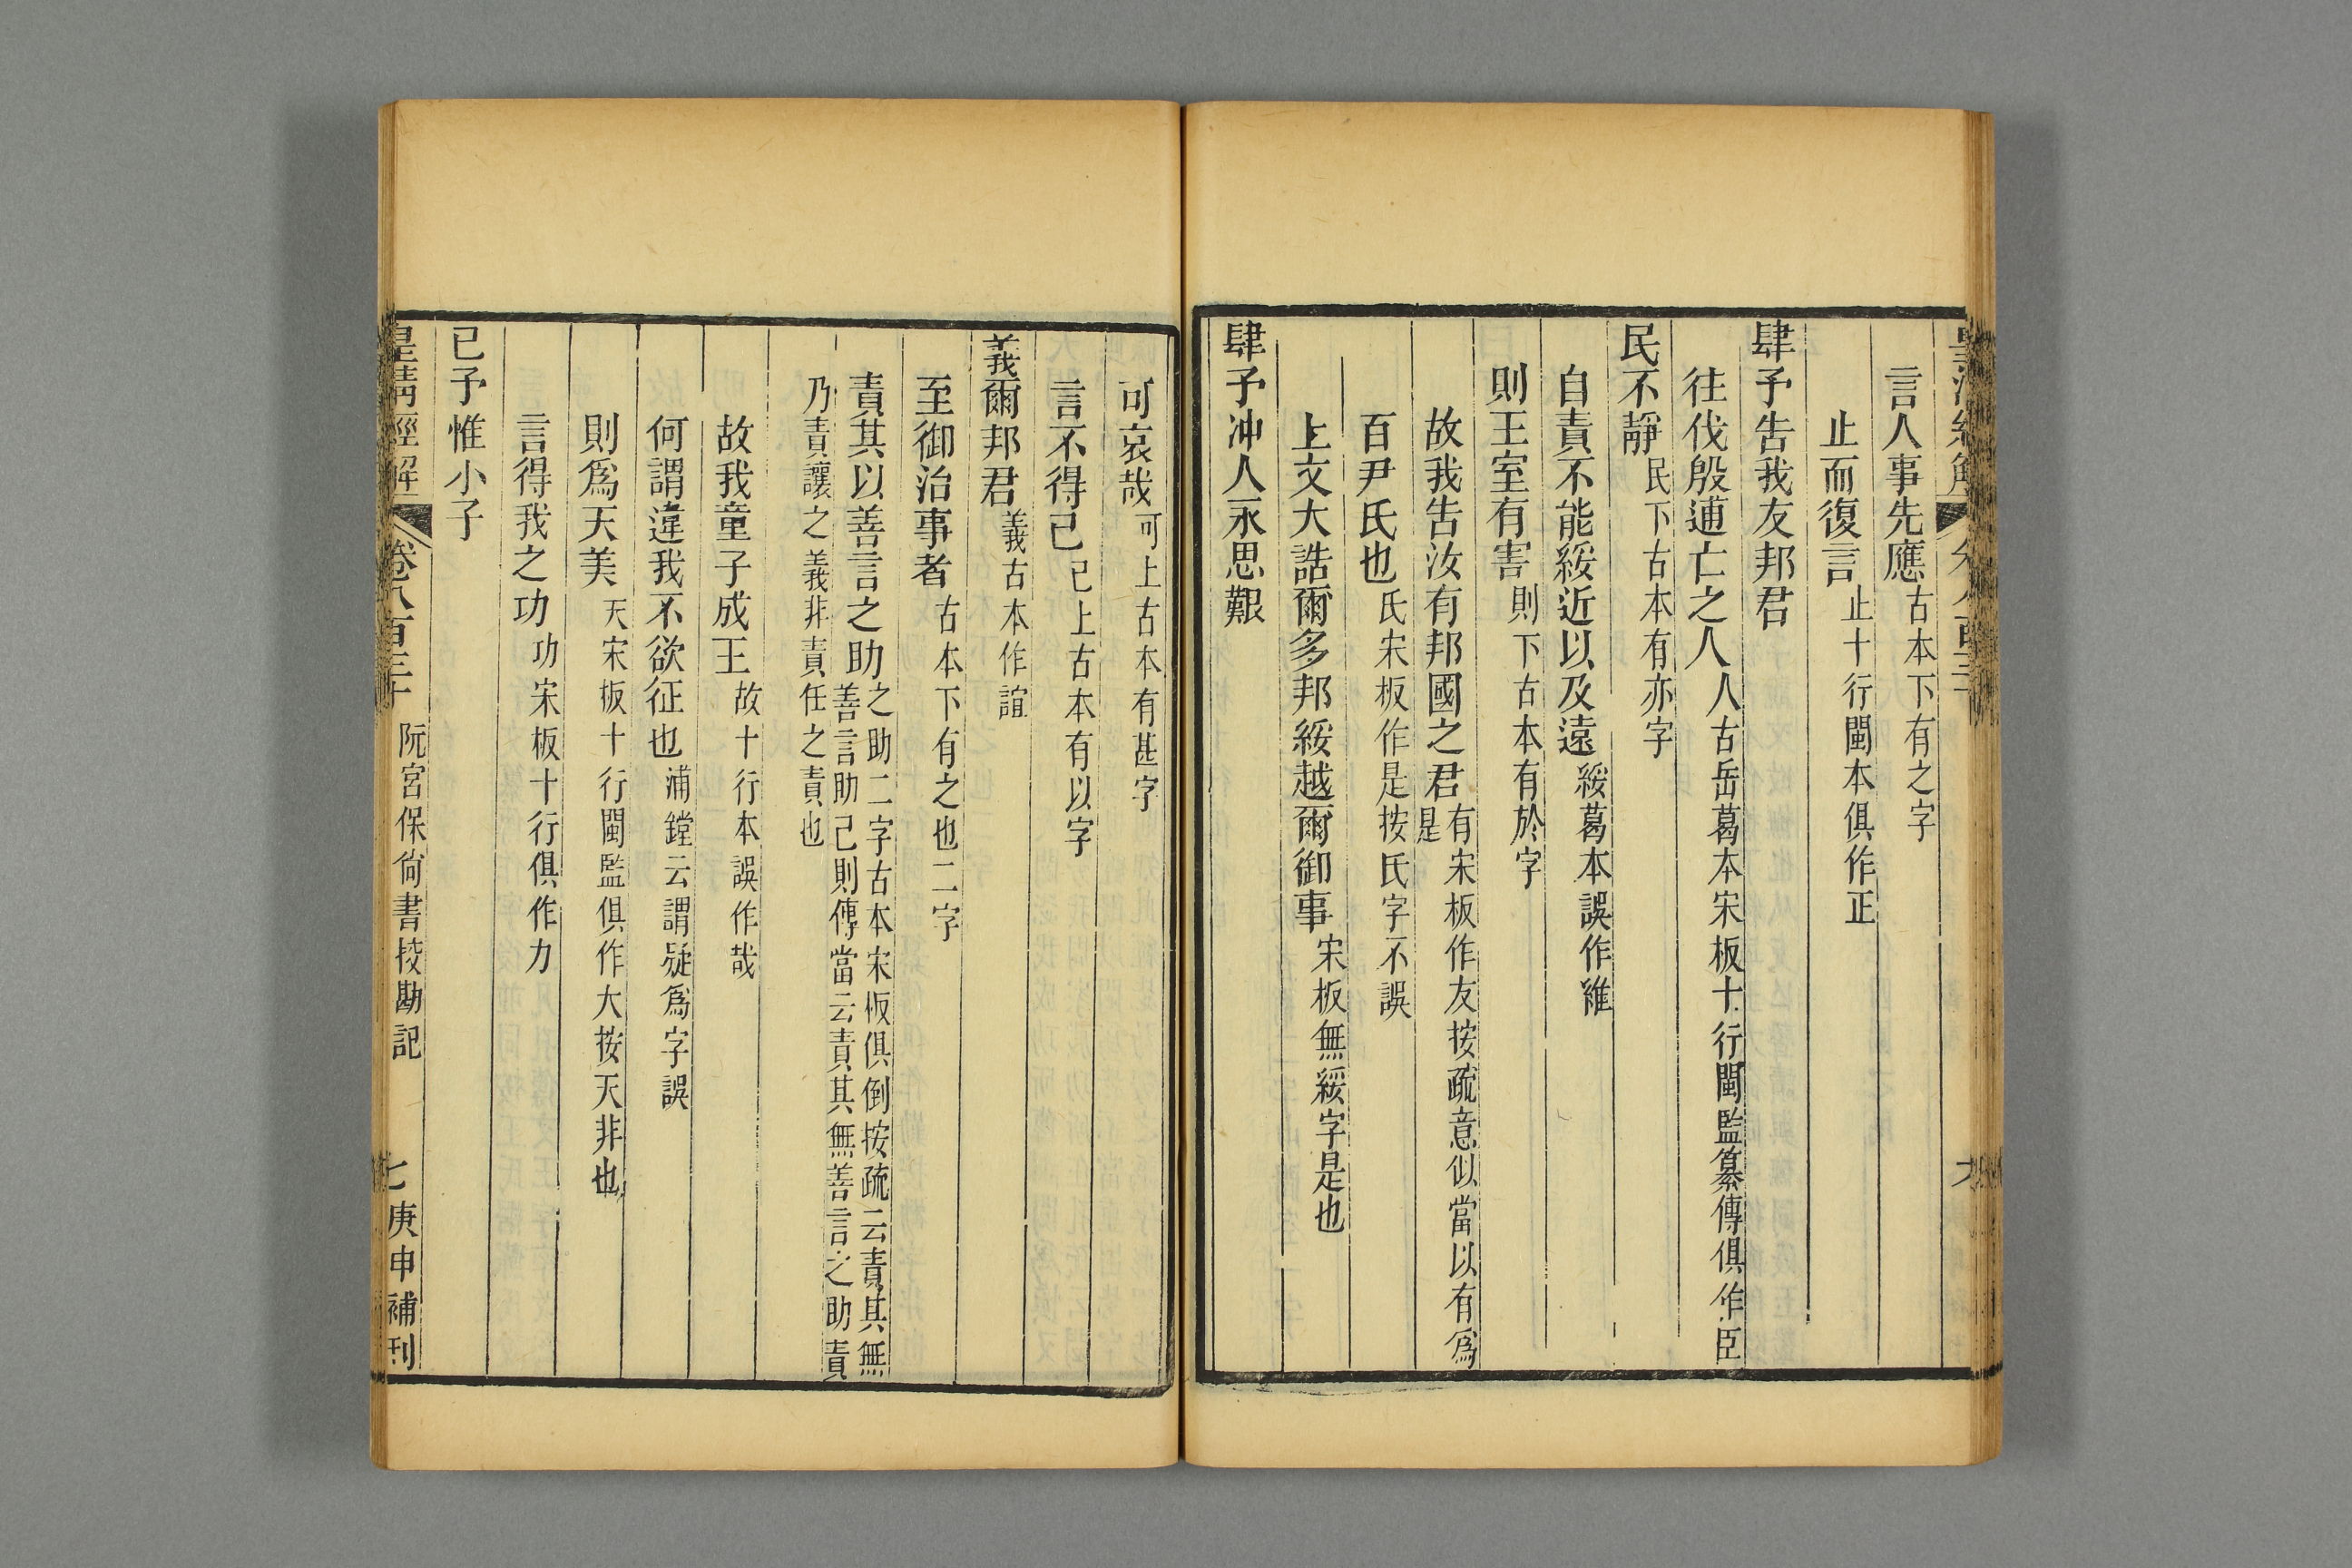 言人事先應古本下有之字
止而復言止十行閩本俱作正
肆予告我友邦君
往伐殷逋亡之人人古岳葛本宋板十行閩監纂傳俱作臣
民不靜民下古本有亦字
自責不能綏近以及遠綏葛本誤作雖
則王室有害則下古本有於字
故我告汝有邦國之君有宋板作友按疏意似當以有爲
是
百尹氏也氏宋板作是按氏字不誤
上文大誥爾多邦綏越爾御事宋板無綏字是也
肆予沖人永思艱
可哀哉可上古本有甚字
言不得已已上古本有以字
義爾邦君義古本作誼
至御治事者古本下有之也二字
責其以善言之助之助二字古本宋板俱倒按疏云責其無
善言助己則傳當云責其無善言之助責
乃責讓之義非責任之責也
故我童子成王故十行本誤作哉
何謂違我不欲征也浦鏜云謂疑爲字誤
則爲天美天宋板十行閩監俱作大按天非也
言得我之功功宋板十行俱作力
已予惟小子
皇清經解 卷八百三十 阮宮保尙書挍勘記 七 庚申補刊